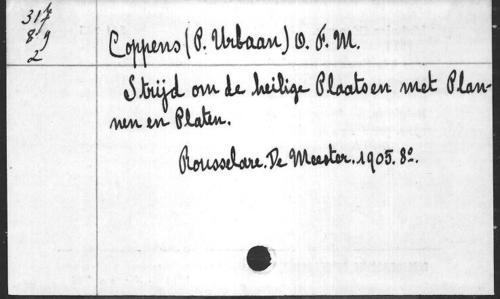 317
89
2
Coppens (P. Urbaan) O. F. M.
Strijd om de heilige Plaatsen met Plan-
nen en Platen.
Rousselare. De Meester. 1905. 8o.